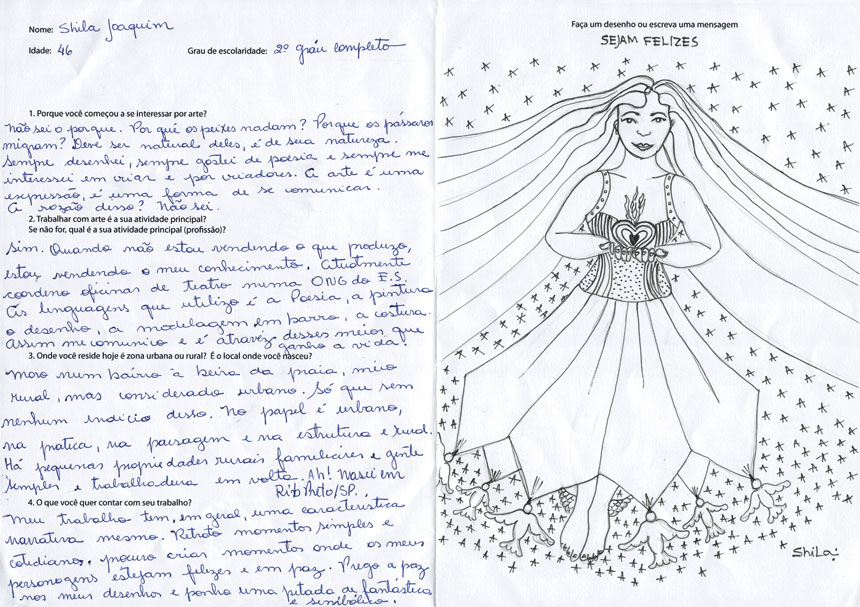 Nome: Shila Joaquim
Idade: 46 Grau de escolaridade: 2º gráu completo
1. Porque você começou a se interessar por arte?
Não sei o porque. Por quê os peixes nadam? Porque os pássaros
migram? Deve ser natural deles, é de sua natureza.
Sempre desenhei, sempre gostei de poesia e sempre me
interessei em criar e por criadores. A arte é uma
expressão, é uma forma de se comunicar.
A razão disso? Não sei.
2. Trabalhar com arte é a sua atividade principal?
Se não for, qual é a sua atividade principal (profissão)?
Sim. Quando não estou vendendo o que produzo,
estou vendendo o meu conhecimento. Atualmente
coordeno oficinas de teatro numa ONG do E.S.
As linguagens que utilizo é a Poesia, a pintura
o desenho, a modelagem em barro, a costura.
Assim me comunico e é atravéz desses meios que
ganho a vida!
3. Onde você reside hoje é zona urbana ou rural? É o local onde você nasceu?
Moro num bairro à beira da praia, meio
rural, mas considerado urbano. Só que sem
nenhum indício disso. No papel é urbano,
na pratica, na paisagem e na estrutura é rural.
Há pequenas propriedades rurais familiares e gente
simples e trabalhadora em volta. Ah! Nasci em
Rib Preto/SP.
4. O que você quer contar com seu trabalho?
Meu trabalho tem, em geral, uma característica
narrativa mesmo. Retrato momentos simples e
cotidianos, procuro criar momentos onde os meus
personagens estejam felizes e em paz. Prego a paz
nos meus desenhos e ponho uma pitada de fantástica
e simbólico.
Faça um desenho ou escreva uma mensagem
SEJAM FELIZES
Shila